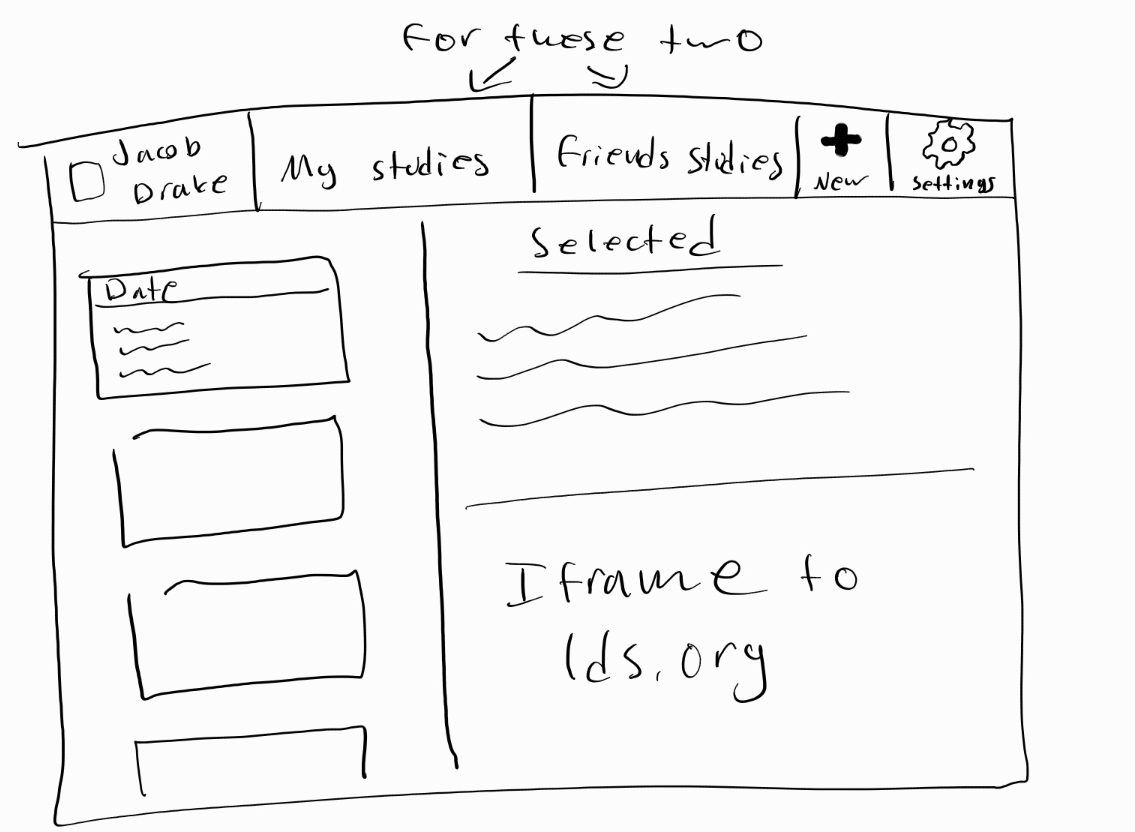 For these two
Jacob
Drake
My studies
Friends Studies
New
Settings
Selected
Date
Iframe to
lds.org